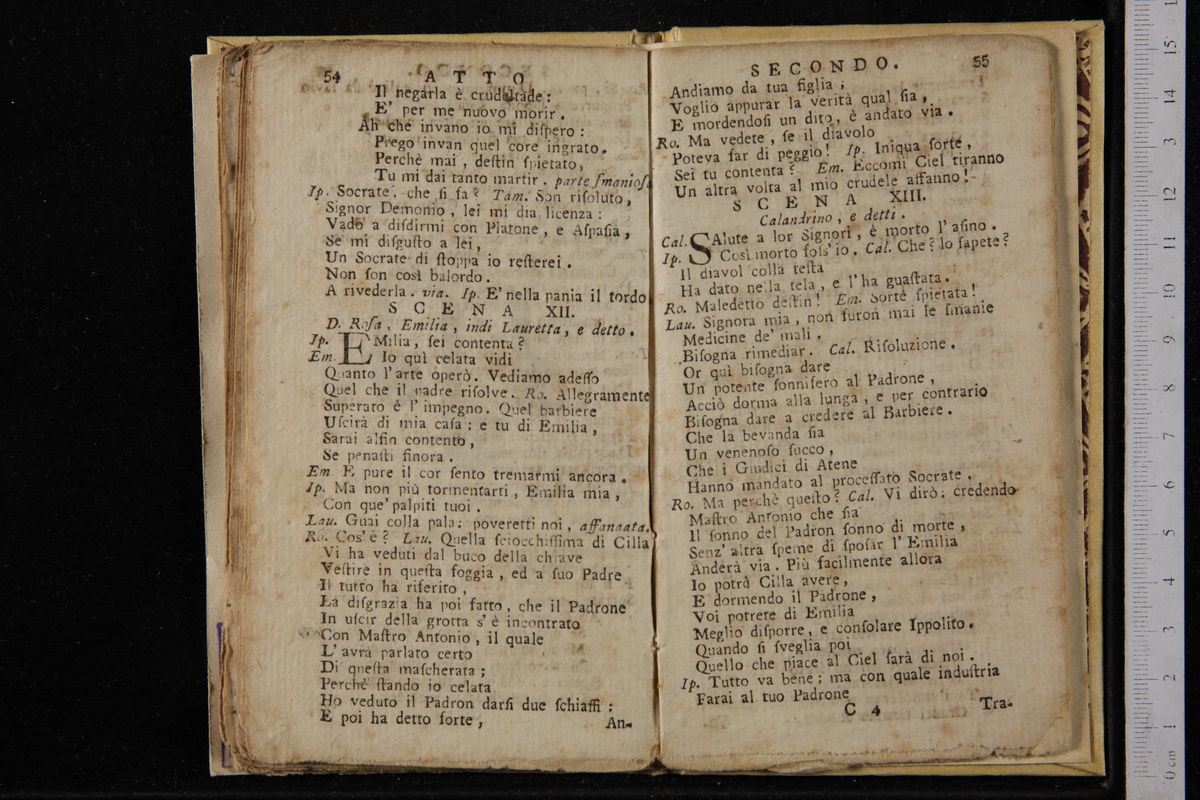 54 ATTO
Il negarla è crudeltade:
E' per me nuovo morir.
Ah che invano io mi diſpero:
Prego invan quel core ingrato.
Perchè mai, deſtin ſpietato,
Tu mi dai tanto martir. parte ſmanioſ
Ip. Socrate, che ſi fa? Tam. Son riſoluto,
Signor Demonio, lei mi dia licenza:
Vado a diſdirmi con Platone, e Aſpaſia,
Se mi diſguſto a lei,
Un Socrate di ſtoppa io reſterei.
Non ſon così balordo.
A rivederla. via. Ip. E' nella pania il tordo
SCENA XII.
D. Roſa, Emilia, indi Lauretta, e detto.
Ip. EMilia, ſei contenta?
Em. Io quì celata vidi
Quanto l'arte operò. Vediamo adeſſo
Quel che il padre riſolve. Ro. Allegramente
Superato è l'impegno. Quel barbiere
Uſcirà di mia caſa: e tu di Emilia,
Sarai alfin contento,
Se penaſti finora.
Em. E pure il cor ſento tremarmi ancora.
Ip. Ma non più tormentarti, Emilia mia,
Con que' palpiti tuoi.
Lau. Guai colla pala: poveretti noi, affannata.
Ro. Cos'è? Lau. Quella ſciocchiſſima di Cilla
Vi ha veduti dal buco della chiave
Veſtire in queſta foggia, ed a ſuo Padre
Il tutto ha riferito,
La diſgrazia ha poi fatto, che il Padrone
In uſcir della grotta s'è incontrato
Con Maſtro Antonio, il quale
L'avrà parlato certo
Di queſta maſcherata;
Perchè ſtando io celata
Ho veduto il Padron darſi due ſchiaffi:
E poi ha detto forte,
An-
SECONDO. 55
Andiamo da tua figlia;
Voglio appurar la verità qual ſia,
E mordendoſi un dito, è andato via.
Ro. Ma vedete, ſe il diavolo
Poteva far di peggio! Ip. Iniqua ſorte,
Sei tu contenta? Em. Eccomi Ciel tiranno
Un altra volta al mio crudele affanno!
SCENA XIII.
Calandrino, e detti.
Cal. SAlute a lor Signori, è morto l'aſino.
Ip. Così morto foſs'io. Cal. Che? lo ſapete?
Il diavol colla teſta
Ha dato nella tela, e l'ha guaſtata.
Ro. Maledetto deſtin! Em. Sorte ſpietata!
Lau. Signora mia, non furon mai le ſmanie
Medicine de' mali.
Biſogna rimediar. Cal. Riſoluzione.
Or quì biſogna dare
Un potente ſonnifero al Padrone,
Acciò dorma alla lunga, e per contrario
Biſogna dare a credere al Barbiere.
Che la bevanda ſia
Un venenoſo ſucco,
Che i Giudici di Atene
Hanno mandato al proceſſato Socrate.
Ro. Ma perchè queſto? Cal. Vi dirò: credendo
Maſtro Antonio che ſia
Il ſonno del Padron ſonno di morte,
Senz'altra ſpeme di ſpoſar l'Emilia
Anderà via. Più facilmente allora
Io potrò Cilla avere,
E dormendo il Padrone,
Voi potrete di Emilia
Meglio diſporre, e conſolare Ippolito.
Quando ſi ſveglia poi
Quello che piace al Ciel ſarà di noi.
Ip. Tutto va bene; ma con quale induſtria
Farai al tuo Padrone
C 4 Tra-
0 cm 1 2 3 4 5 6 7 8 9 10 11 12 13 14 15